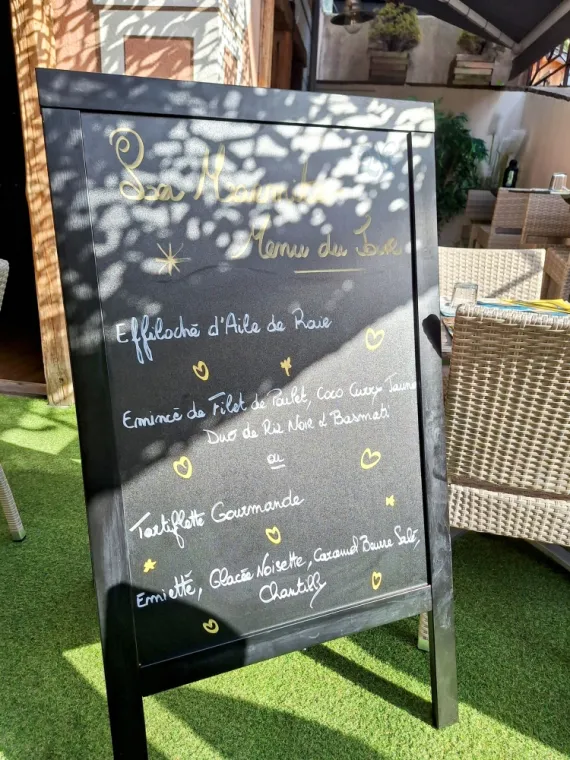 La
Menu du Jour
Effiloché d'Aile de Raie
Emincé de Filet de Poulet, Coco Curry Jaune
Duo de Riz Noir & Basmati
ou
Tartiflette Gourmande
Emietté, Glacée Noisette, Caramel Beurre Salé,
Chantilly